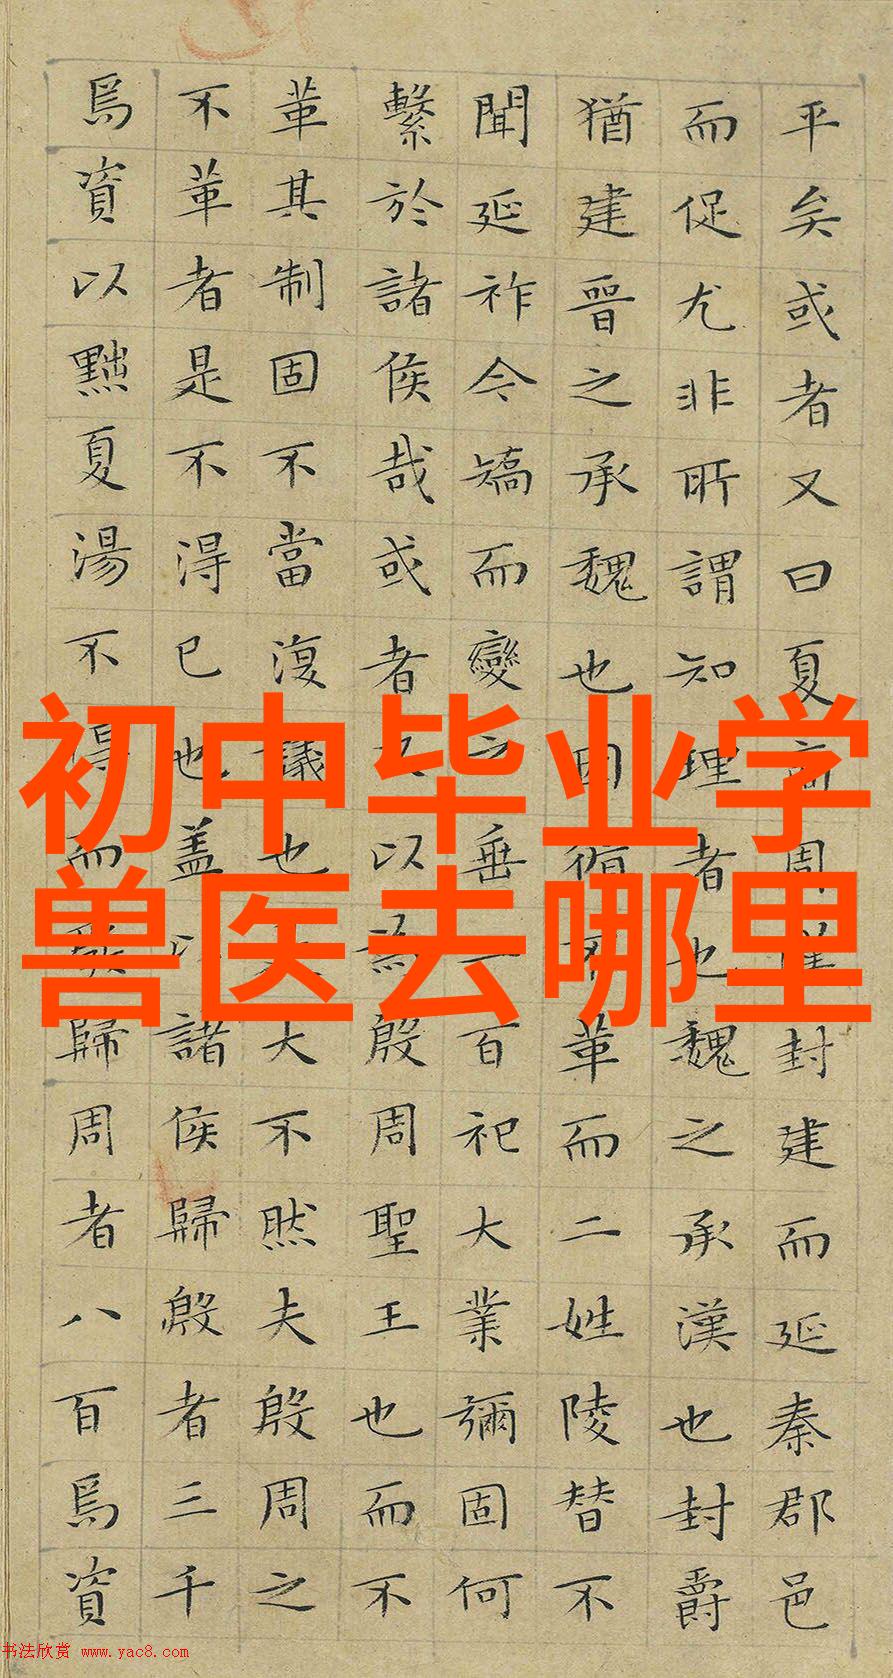 平矣或者又曰夏商周漢封建而延秦郡邑
而促尤非所謂知理者也魏之承漢也封爵
猶建晉之承魏也因循不革而二姓陵替不
聞延祚今矯而變之垂百祀大業彌固何
繫於諸侯哉或者又以為殷周聖王也而不
革其制固不當復議也大不然夫殷周之
不革者是不得已也盖以諸侯歸殷者三千
焉資以黜夏湯不得而歸周者八百焉資
初中毕业学
兽医去哪里
书法欣赏 www.yac8.com